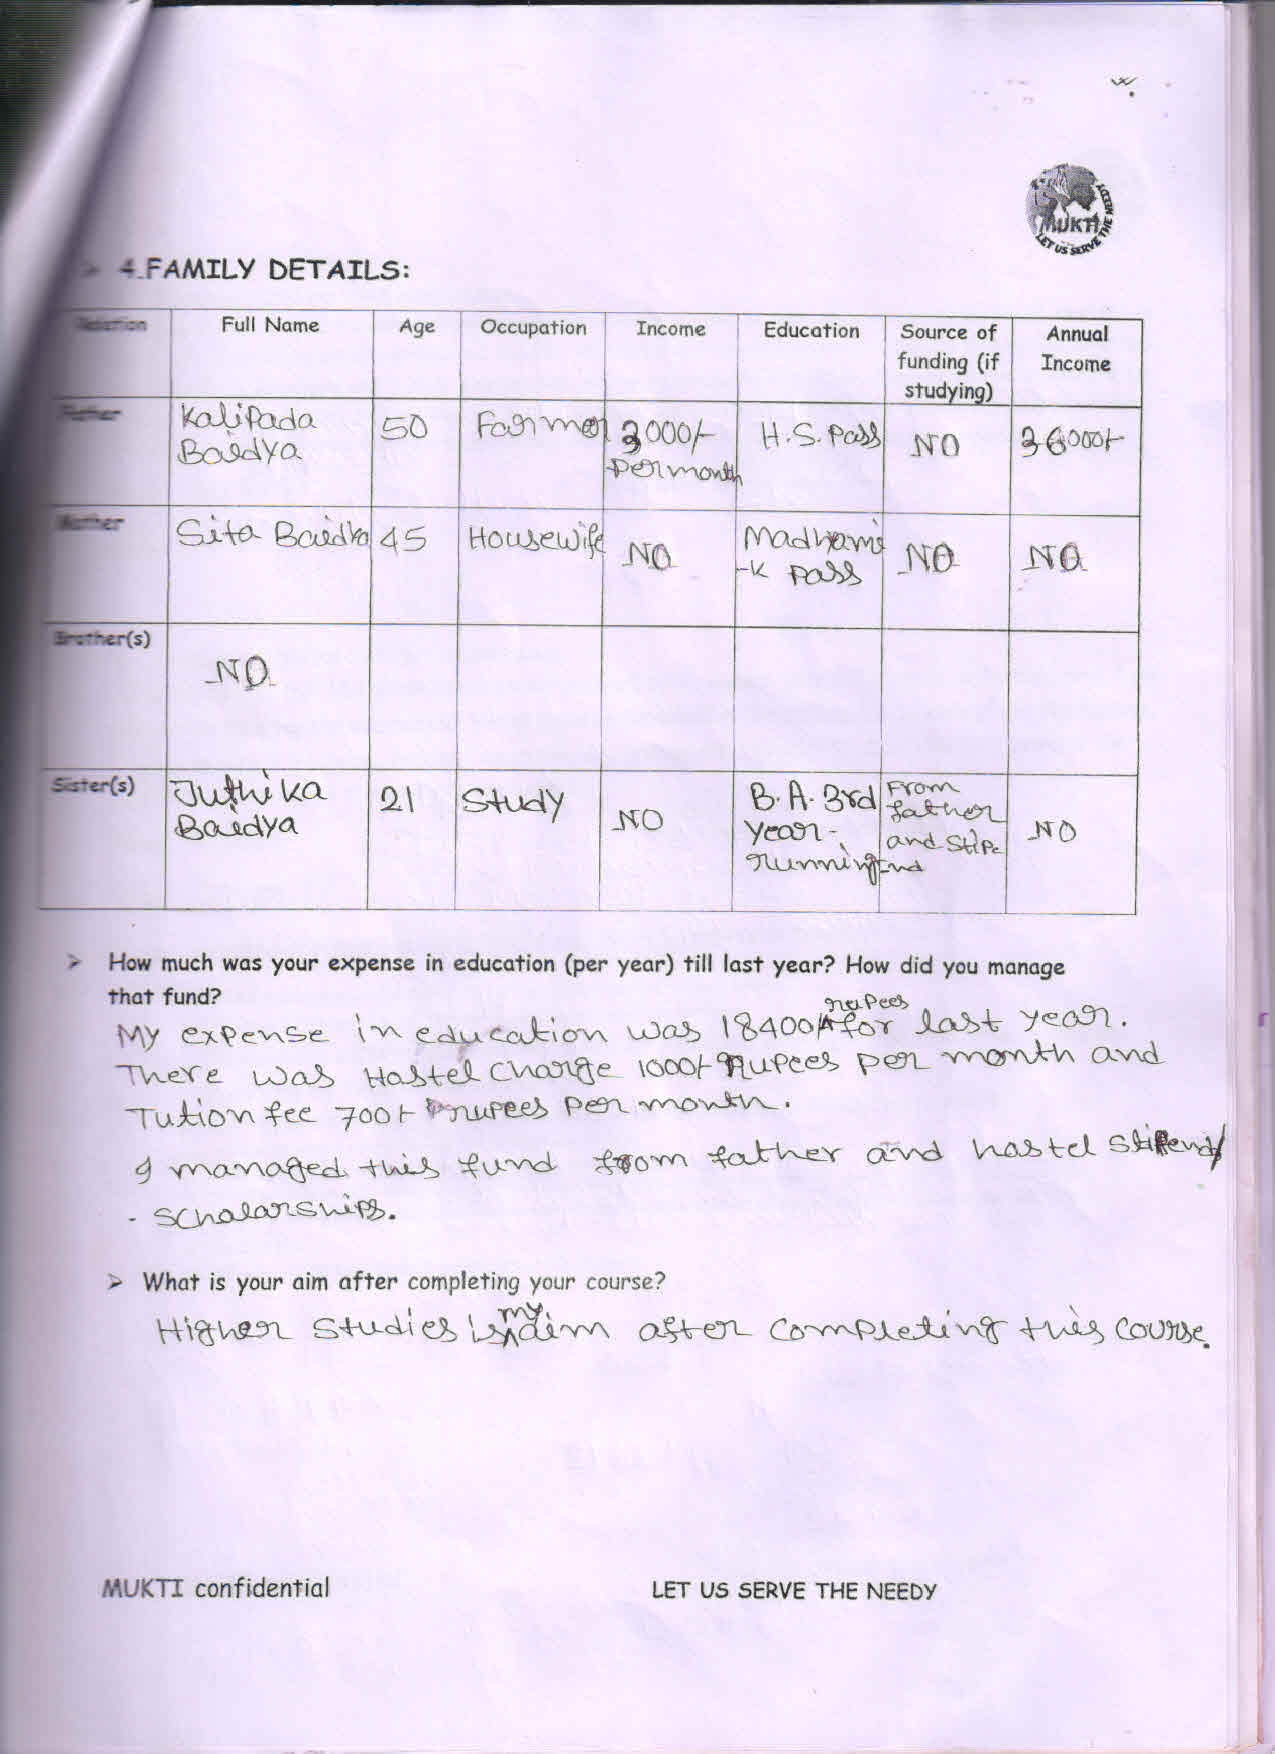 MUKTI
LET US SERVE THE NEEDY
4.FAMILY DETAILS:
Relation Full Name Age Occupation Income Education Source of funding (if studying) Annual Income
Father Kalipada Baidya 50 Farmer 3000/- per month H.S. Pass NO 36000/-
Mother Sita Baidya 45 Housewife NO Madhyami-k pass NO NO
Brother(s) NO
Sister(s) Juthika Baidya 21 Study NO B.A. 3rd year- running From father and stipe-nd NO
How much was your expense in education (per year) till last year? How did you manage
that fund?
My expense in education was 18400/- rupees for last year.
There was Hostel charge 1000/- Rupees per month and
Tution fee 700/- rupees per month.
I managed this fund from father and hostel stipend/
- scholarships.
What is your aim after completing your course?
Higher studies is my aim after completing this course.
MUKTI confidential LET US SERVE THE NEEDY